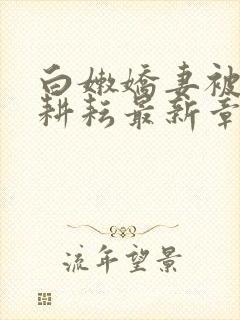 白嫩娇妻被
耕耘最新章
流年望景